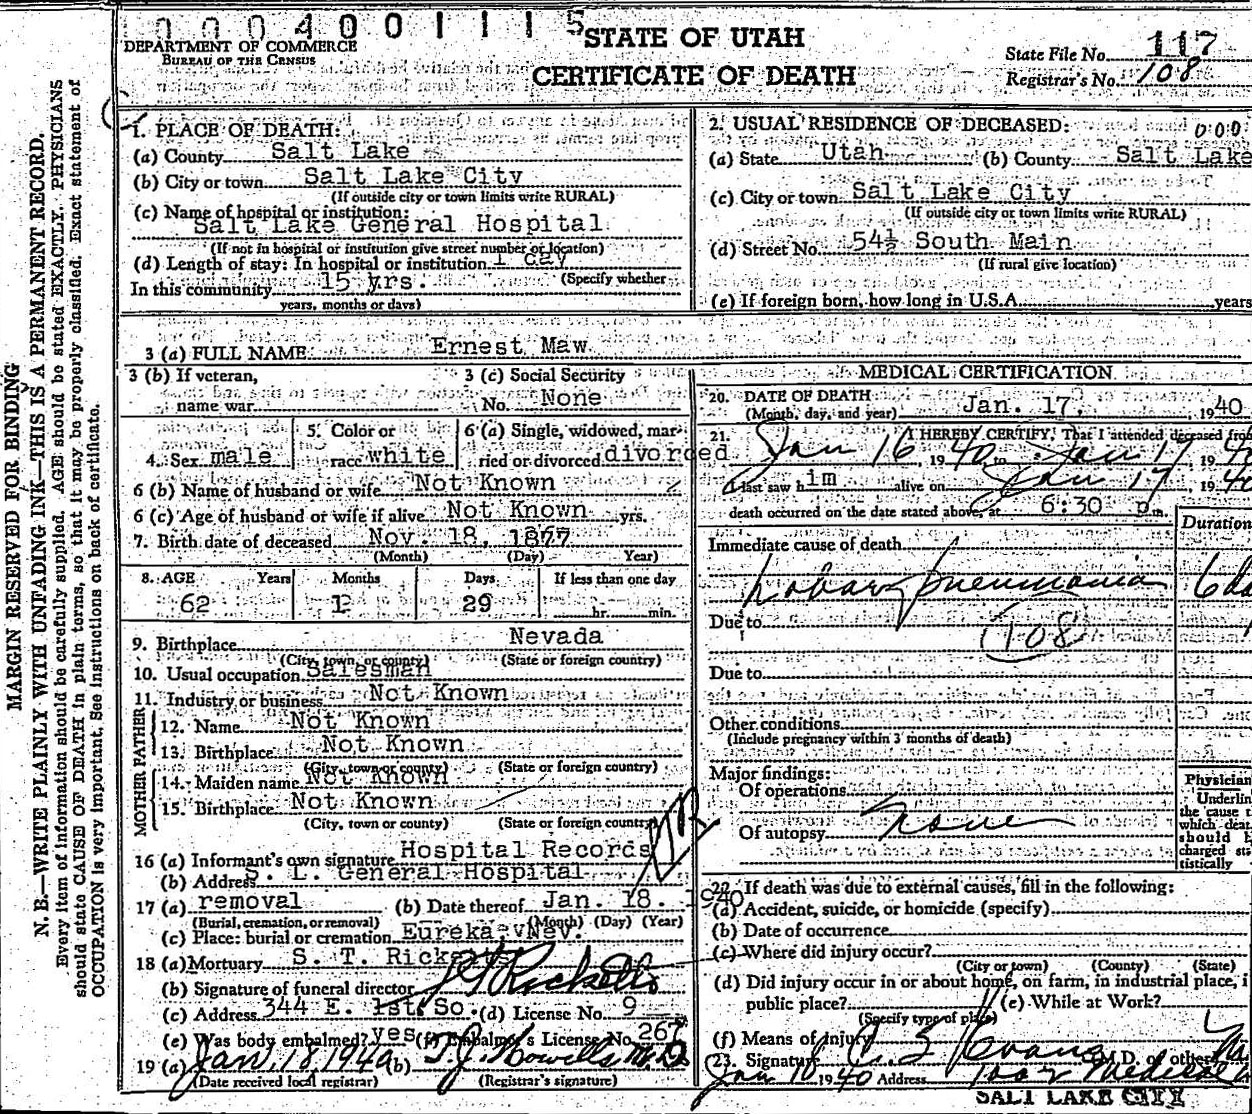 0004001115
DEPARTMENT OF COMMERCE
BUREAU OF THE CENSUS
STATE OF UTAH
CERTIFICATE OF DEATH
State File No. 117
Registrar's No. 108
MARGIN RESERVED FOR BINDING
N. B.—WRITE PLAINLY WITH UNFADING INK—THIS IS A PERMANENT RECORD.
Every item of information should be carefully supplied. AGE should be stated EXACTLY. PHYSICIANS
should state CAUSE OF DEATH in plain terms, so that it may be properly classified. Exact statement of
OCCUPATION is very important. See instructions on back of certificate.
1. PLACE OF DEATH:
(a) County Salt Lake
(b) City or town Salt Lake City
(If outside city or town limits write RURAL)
(c) Name of hospital or institution:
Salt Lake General Hospital
(If not in hospital or institution give street number or location)
(d) Length of stay: In hospital or institution 1 day
(Specify whether
In this community 15 yrs.
years, months or days)
2. USUAL RESIDENCE OF DECEASED: 000
(a) State Utah (b) County Salt Lake
(c) City or town Salt Lake City
(If outside city or town limits write RURAL)
(d) Street No. 54½ South Main
(If rural give location)
(e) If foreign born, how long in U.S.A. years
3 (a) FULL NAME Ernest Maw
3 (b) If veteran,
name war
3 (c) Social Security
No. None
4. Sex male
5. Color or
race white
6 (a) Single, widowed, mar-
ried or divorced divorced
6 (b) Name of husband or wife Not Known
6 (c) Age of husband or wife if alive Not Known yrs.
7. Birth date of deceased Nov. 18, 1877
(Month) (Day) Year)
8. AGE Years Months Days If less than one day
62 1 29 hr. min.
9. Birthplace Nevada
(City, town, or county) (State or foreign country)
10. Usual occupation Salesman
11. Industry or business Not Known
FATHER
12. Name Not Known
13. Birthplace Not Known
(City, town or county) (State or foreign country)
MOTHER
14. Maiden name Not Known
15. Birthplace Not Known
(City, town or county) (State or foreign country)
16 (a) Informant's own signature Hospital Records
(b) Address S. L. General Hospital
17 (a) removal (b) Date thereof Jan. 18. 1940
(Burial, cremation, or removal) (Month) (Day) (Year)
(c) Place: burial or cremation Eureka, Nev.
18 (a) Mortuary S. T. Ricketts
(b) Signature of funeral director S T Ricketts
(c) Address 344 E. 1st. So. (d) License No. 9
(e) Was body embalmed? yes (f) Embalmer's License No. 267
19 (a) Jan. 18, 1940 (b) T. J. Howells M. D.
(Date received local registrar) (Registrar's signature)
MEDICAL CERTIFICATION
20. DATE OF DEATH
(Month, day, and year) Jan. 17, 1940
21. I HEREBY CERTIFY, That I attended deceased from
Jan 16, 1940 to Jan 17 1940
I last saw him alive on Jan 17, 1940
death occurred on the date stated above, at 6:30 p.m.
Duration
Immediate cause of death
Lobar pneumonia 6 da
Due to
108
Due to
Other conditions
(Include pregnancy within 3 months of death)
Major findings:
Of operations
Of autopsy none
Physician
Underlin
the cause t
which deat
should b
charged sta
tistically
22. If death was due to external causes, fill in the following:
(a) Accident, suicide, or homicide (specify)
(b) Date of occurrence
(c) Where did injury occur?
(City or town) (County) (State)
(d) Did injury occur in or about home, on farm, in industrial place, i
public place? (e) While at Work?
(Specify type of place)
(f) Means of Injury
23. Signature C. S. Evans M.D. or other
1940 Address Medical
SALT LAKE CITY